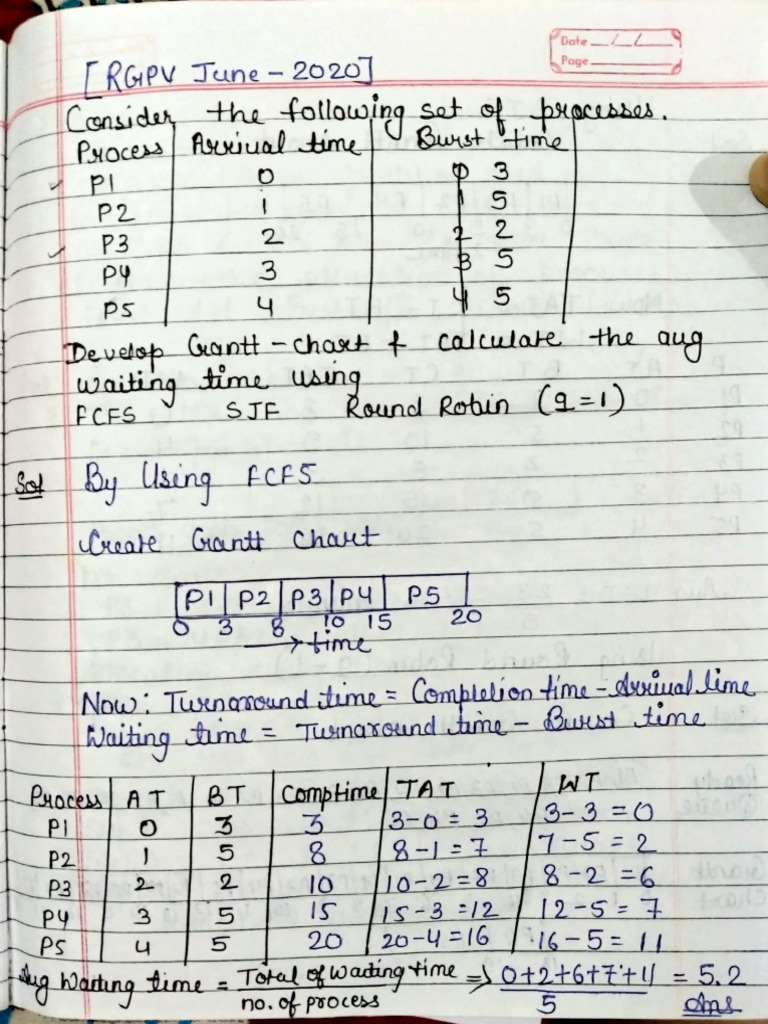 Date __/__/__
Page
[RGPV June - 2020]
Consider the following set of processes.
Process Arrival time Burst time
P1 0 0 3
P2 1 1 5
P3 2 2 2
P4 3 3 5
P5 4 4 5
Develop Grantt-chart & calculate the aug
waiting time using
FCFS SJF Round Robin (q=1)
Sol By Using FCFS
Create Grantt Chart
P1 P2 P3 P4 P5
0 3 8 10 15 20
→ time
Now: Turnaround time = Completion time - Arrival time
Waiting time = Turnaround time - Burst time
Process AT BT Comptime TAT WT
P1 0 3 3 3-0=3 3-3=0
P2 1 5 8 8-1=7 7-5=2
P3 2 2 10 10-2=8 8-2=6
P4 3 5 15 15-3=12 12-5=7
P5 4 5 20 20-4=16 16-5=11
Aug Waiting time = Total of Waiting time => 0+2+6+7+11 = 5.2
no. of process 5 Ans